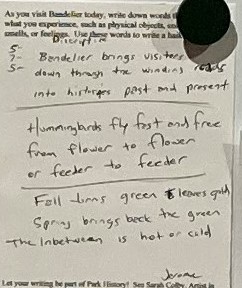 As you visit Bandelier today, write down words
what you experience, such as physical objects,
smells, or feelings. Use these words to write a
Discriptive
5-
7- Bandelier brings visiters
5- down through the winding roads
into historys past and present
Hummingbirds fly fast and free
from flower to flower
or feeder to feeder
Fall turns green leaves gold
Spring brings back the green
The Inbetween is hot or cold
Jerome
Let your writing be part of Park History! See Sarah Colby, Artist in